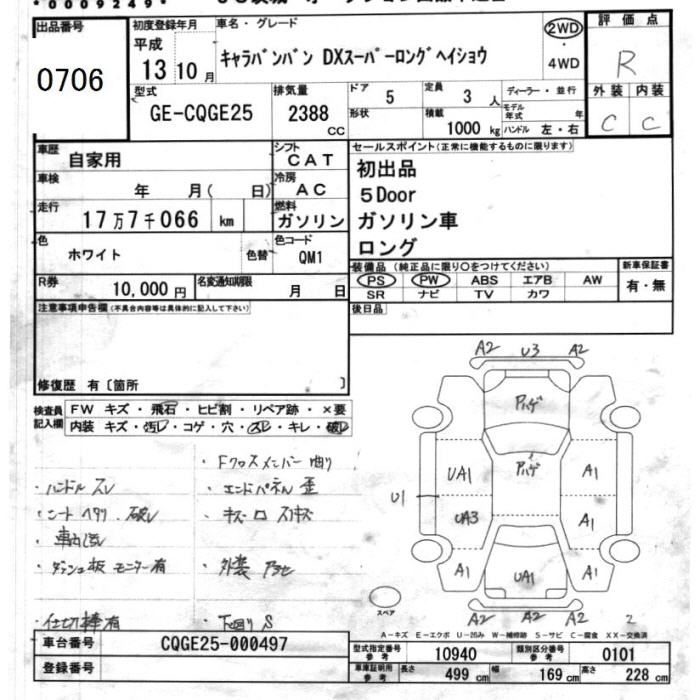 *0009249*
出品番号
0706
初度登録年月
平成
13 10 月
車名・グレード
キャラバンバン DXスーパーロングヘイショウ
2WD
4WD
評価点
R
外装 内装
C C
型式
GE-CQGE25
排気量
2388 CC
ドア
5
定員
3 人
形状
積載
1000 kg
ディーラー・並行
モデル年式 年
ハンドル 左・右
車歴
自家用
シフト
CAT
車検
年 月( 日)
冷房
AC
走行
17万7千066 km
燃料
ガソリン
色
ホワイト
色替
色コード
QM1
R券
10,000 円
名変通知期限
月 日
セールスポイント(正常に機能するものに限ります)
初出品
5Door
ガソリン車
ロング
装備品 (純正品に限り○をつけてください)
PS PW ABS エアB AW
SR ナビ TV カワ
新車保証書
有・無
後日品
注意事項申告欄(不具合内容等は具体的に記入して下さい)
修復歴 有〔箇所 〕
検査員記入欄
FW キズ・飛石・ヒビ割・リペア跡・×要
内装 キズ・汚レ・コゲ・穴・スレ・キレ・破レ
・Fクロスメンバー曲り
・ハンドルスレ
・エンドパネル歪
・シートヘタリ・破レ
・キズ凹スリキズ
・ダッシュ板モニター有
・外装アラセ
・仕切棒有
・下回りS
A2 U3 A2
Pハゲ
Pハゲ
UA1 A1
U1
UA3 A1
A1 UA1 A1
A2 A2 A2
スペア
2
A-キズ E-エクボ U-凹み W-補修跡 S-サビ C-腐食 XX-交換済
車台番号
CQGE25-000497
登録番号
型式指定番号
参考
10940
類別区分番号
参考
0101
車庫証明用
参考
長さ 499 cm 幅 169 cm 高さ 228 cm